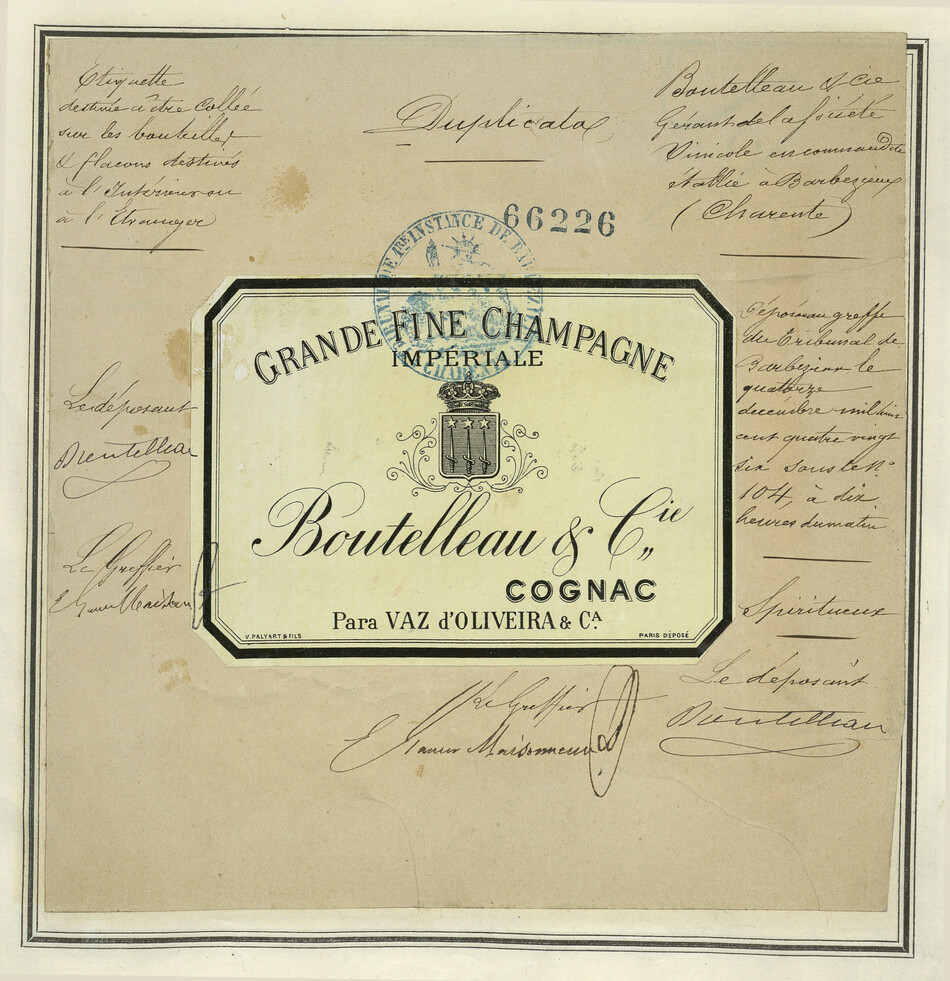 Etiquette
destinée à être Collée
sur les bouteilles
& flacons destinés
à l'Intérieur ou
à l'Etranger
Duplicata
Boutelleau & Cie
Gérant de la Société
Vinicole en commandite
établie à Barbezieux
(Charente)
66226
TRIBUNAL DE 1RE INSTANCE DE BARBEZIEUX
CHARENTE
GRANDE FINE CHAMPAGNE
IMPÉRIALE
Boutelleau & Cie
COGNAC
Para VAZ d'OLIVEIRA & CA.
V. PALYART & FILS
PARIS DÉPOSÉ
Déposé au greffe
du Tribunal de
Barbezieux le
quatorze
decembre mil huit
cent quatre vingt
six sous le No
104, à dix
heures du matin
Spiritueux
Le déposant
Boutelleau
Le déposant
Boutelleau
Le Greffier
Le Greffier
Maisonneuve